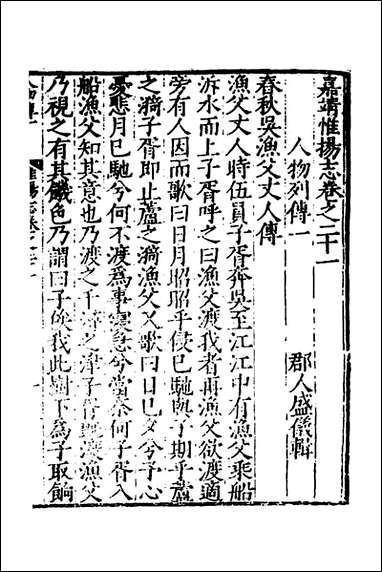 嘉靖惟揚志卷之二十一
人物列傳一 郡人盛儀輯
春秋吳漁父丈人傳
漁父丈人時伍員子胥奔吳至江江中有漁父乘船
泝水而上子胥呼之曰漁父渡我者再漁父欲渡適
旁有人因而歌曰日月昭昭乎侵已馳與子期乎蘆
之漪子胥即止蘆之漪漁父又歌曰日已夕兮予心
憂悲月已馳兮何不渡為事寖急兮當奈何子胥入
船漁父知其意也乃渡之千潯之津子胥既渡漁父
乃視之有其饑色乃謂曰子俟我此樹下為子取餉